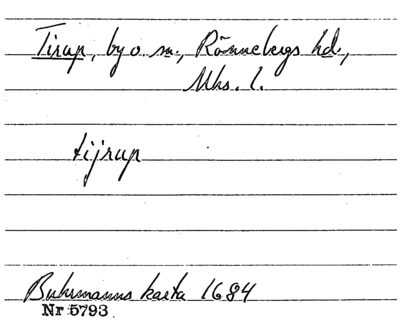 Tirup, by o sn., Rönnebergs hd.,
Mhs. l.
tijrup
Buhrmanns karta 1684
Nr 5793